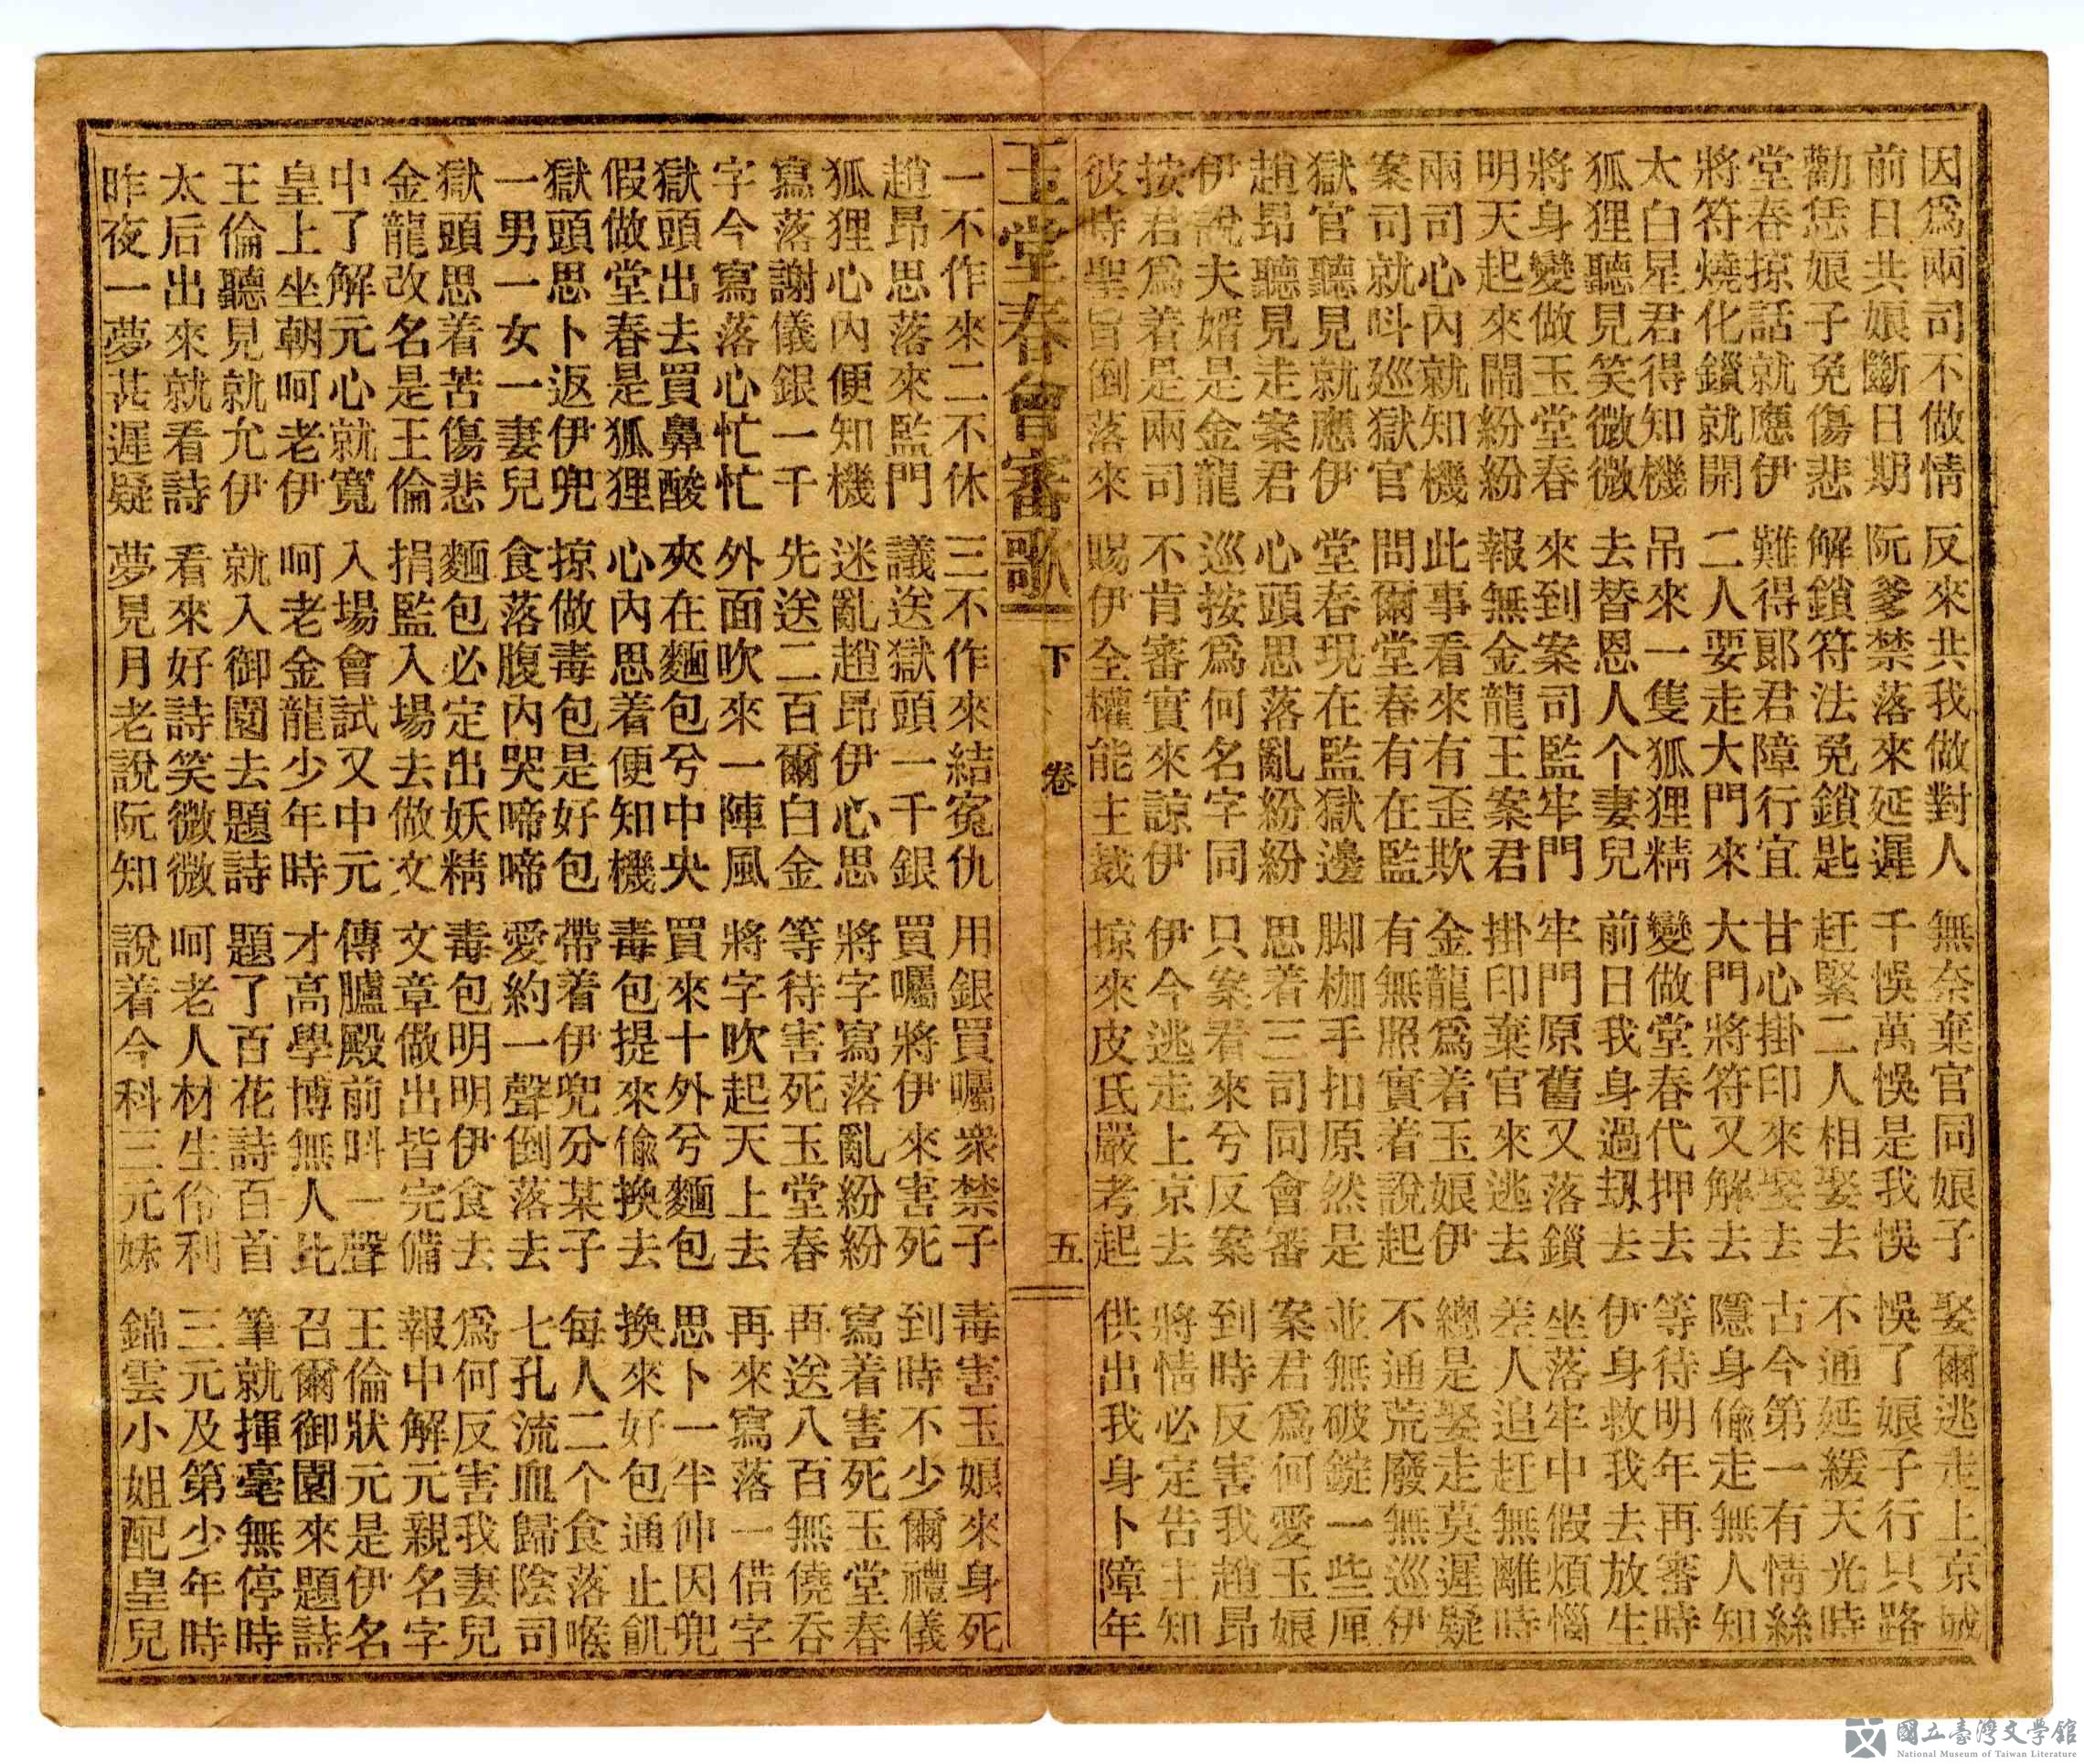 因爲兩司不做情　反來共我做對人　無奈棄官同娘子　娶爾逃走上京城
前日共娘斷日期　阮爹禁落來延遲　千悞萬悞是我悞　悞了娘子行只路
勸恁娘子免傷悲　解鎖符法免鎖匙　赶緊二人相娶去　不通延緩天光時
堂春掠話就應伊　難得郎君障行宜　甘心掛印來娶去　古今第一有情絲
將符燒化鎖就開　二人要走大門來　大門將符又解去　隱身偷走無人知
太白星君得知機　吊來一隻狐狸精　變做堂春代押去　等待明年再審時
狐狸聽見笑微微　去替恩人个妻兒　前日我身過刼去　伊身救我去放生
將身變做玉堂春　來到案司監牢門　牢門原舊又落鎖　坐落牢中假煩惱
明天起來鬧紛紛　報無金龍王案君　掛印棄官來逃去　差人追赶無離時
兩司心內就知機　此事看來有歪欺　金龍爲着玉娘伊　總是娶走莫遲疑
案司就呌廵獄官　問爾堂春有在監　有無照實着說起　不通荒廢無巡伊
獄官聽見就應伊　堂春現在監獄邊　脚枷手扣原然是　並無破錠一些厘
趙昂聽見走案君　心頭思落亂紛紛　思着三司同會審　案君爲何愛玉娘
伊說夫婿是金龍　巡按爲何名字同　只案看來兮反案　到時反害我趙昂
按君爲着是兩司　不肯審實來諒伊　伊今逃走上京去　將情必定告主知
彼時聖旨倒落來　賜伊全權能主裁　掠來皮氏嚴考起　供出我身卜障年
玉堂春會審歌　下　卷　五
一不作來二不休　三不作來結寃仇　用銀買囑衆禁子　毒害玉娘來身死
趙昂思落來監門　議送獄頭一千銀　買囑將伊來害死　到時不少爾禮儀
狐狸心內便知機　迷亂趙昂伊心思　將字寫落亂紛紛　寫着害死玉堂春
寫落謝儀銀一千　先送二百爾白金　等待害死玉堂春　再送八百無僥吞
字今寫落心忙忙　外面吹來一陣風　將字吹起天上去　再來寫落一借字
獄頭出去買鼻酸　夾在麵包兮中央　買來十外兮麵包　思卜一半仲因兜
假做堂春是狐狸　心內思着便知機　毒包提來偷換去　換來好包通止飢
獄頭思卜返伊兜　掠做毒包是好包　帶着伊兜分某子　每人二个食落喉
一男一女一妻兒　食落腹內哭啼啼　愛約一聲倒落去　七孔流血歸陰司
獄頭思着苦傷悲　麵包必定出妖精　毒包明明伊食去　爲何反害我妻兒
金龍改名是王倫　捐監入場去做文　文章做出皆完備　報中解元親名字
中了解元心就寬　入場會試又中元　傳臚殿前呌一聲　王倫狀元是伊名
皇上坐朝呵老伊　呵老金龍少年時　才高學博無人比　召爾御園來題詩
王倫聽見就允伊　就入御園去題詩　題了百花詩百首　筆就揮毫無停時
太后出來就看詩　看來好詩笑微微　呵老人材生伶利　三元及第少年時
昨夜一夢甚遲疑　夢見月老說阮知　說着今科三元妹　錦雲小姐配皇兒
國立臺灣文學館
National Museum of Taiwan Literature